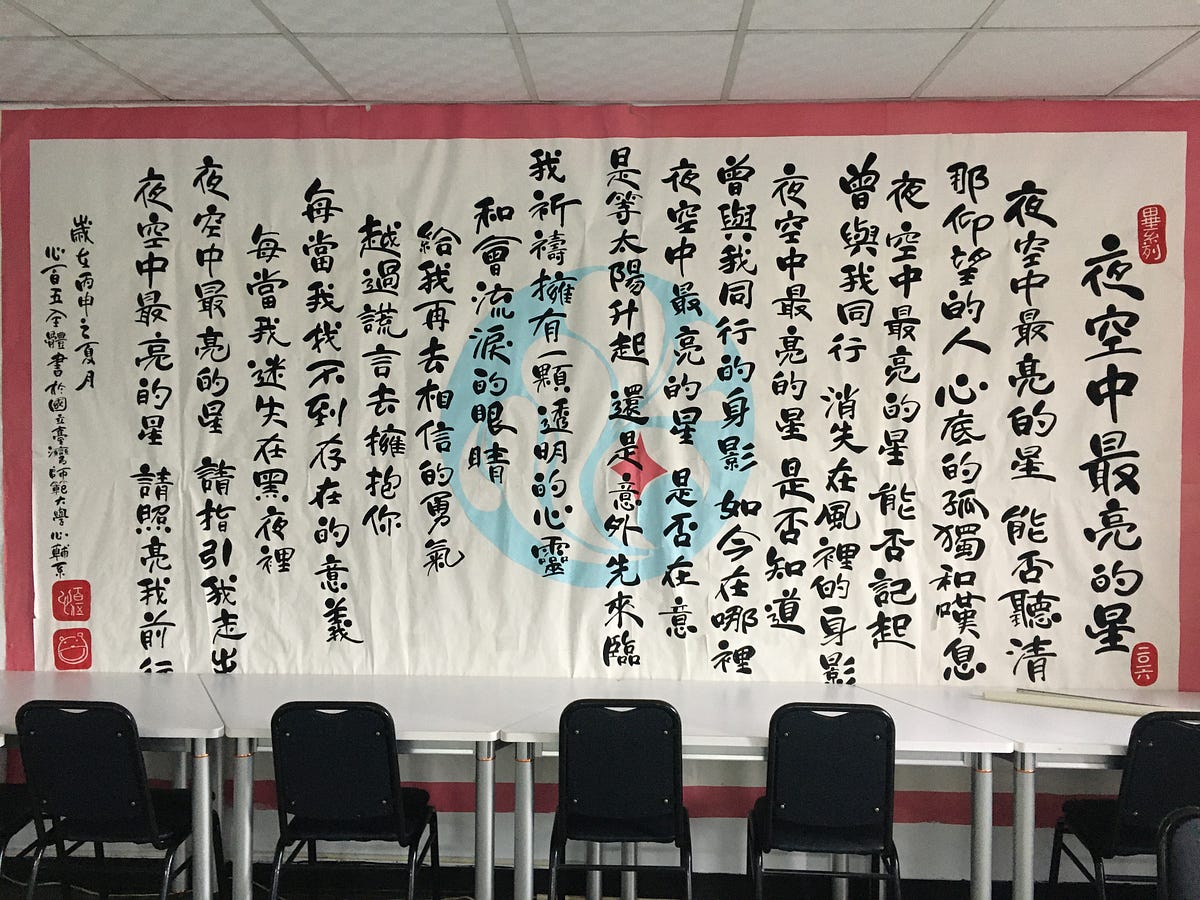 畢
夜空中最亮的星
二〇一六
夜空中最亮的星 能否聽清
那仰望的人 心底的孤獨和嘆息
夜空中最亮的星 能否記起
曾與我同行 消失在風裡的身影
夜空中最亮的星 是否知道
曾與我同行的身影 如今在哪裡
夜空中最亮的星 是否在意
是等太陽升起 還是意外先來臨
我祈禱擁有一顆透明的心靈
和會流淚的眼睛
給我再去相信的勇氣
越過謊言去擁抱你
每當我找不到存在的意義
每當我迷失在黑夜裡
夜空中最亮的星 請指引我走出
夜空中最亮的星 請照亮我前行
歲在丙申之夏月
心百五全體書於國立臺灣師範大學心輔系